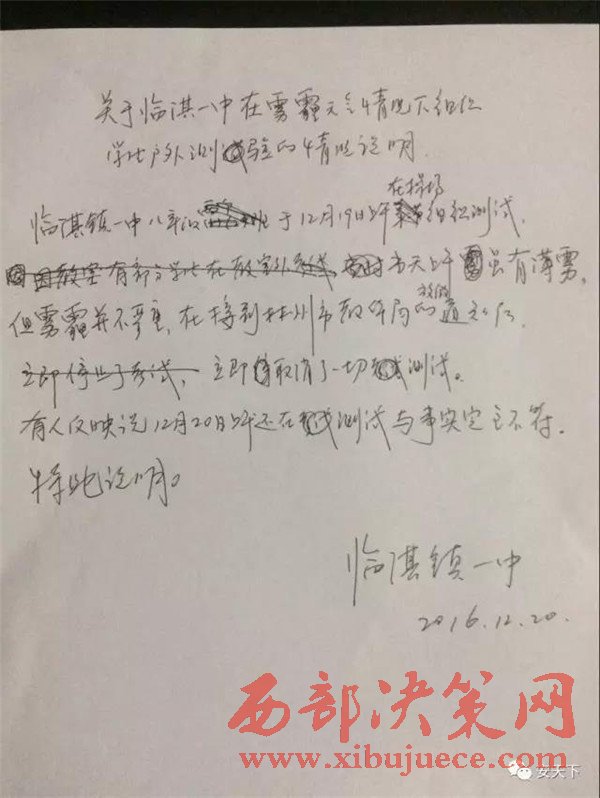 关于临淇一中在雾霾天气情况下组织
学生户外测验的情况说明
在操场
临淇镇一中八年级于12月19日上午组织测试,
教室有部分学生在教室外考试, 当天上午虽有薄雾,
放假
但雾霾并不严重,在接到林州市教体局的通知后
立即停止了考试,立即取消了一切测试。
有人反映说12月20日上午还在测试与事实完全不符。
特此说明。
临淇镇一中
2016.12.20.
西部决策网
www.xibujuece.com
安天下